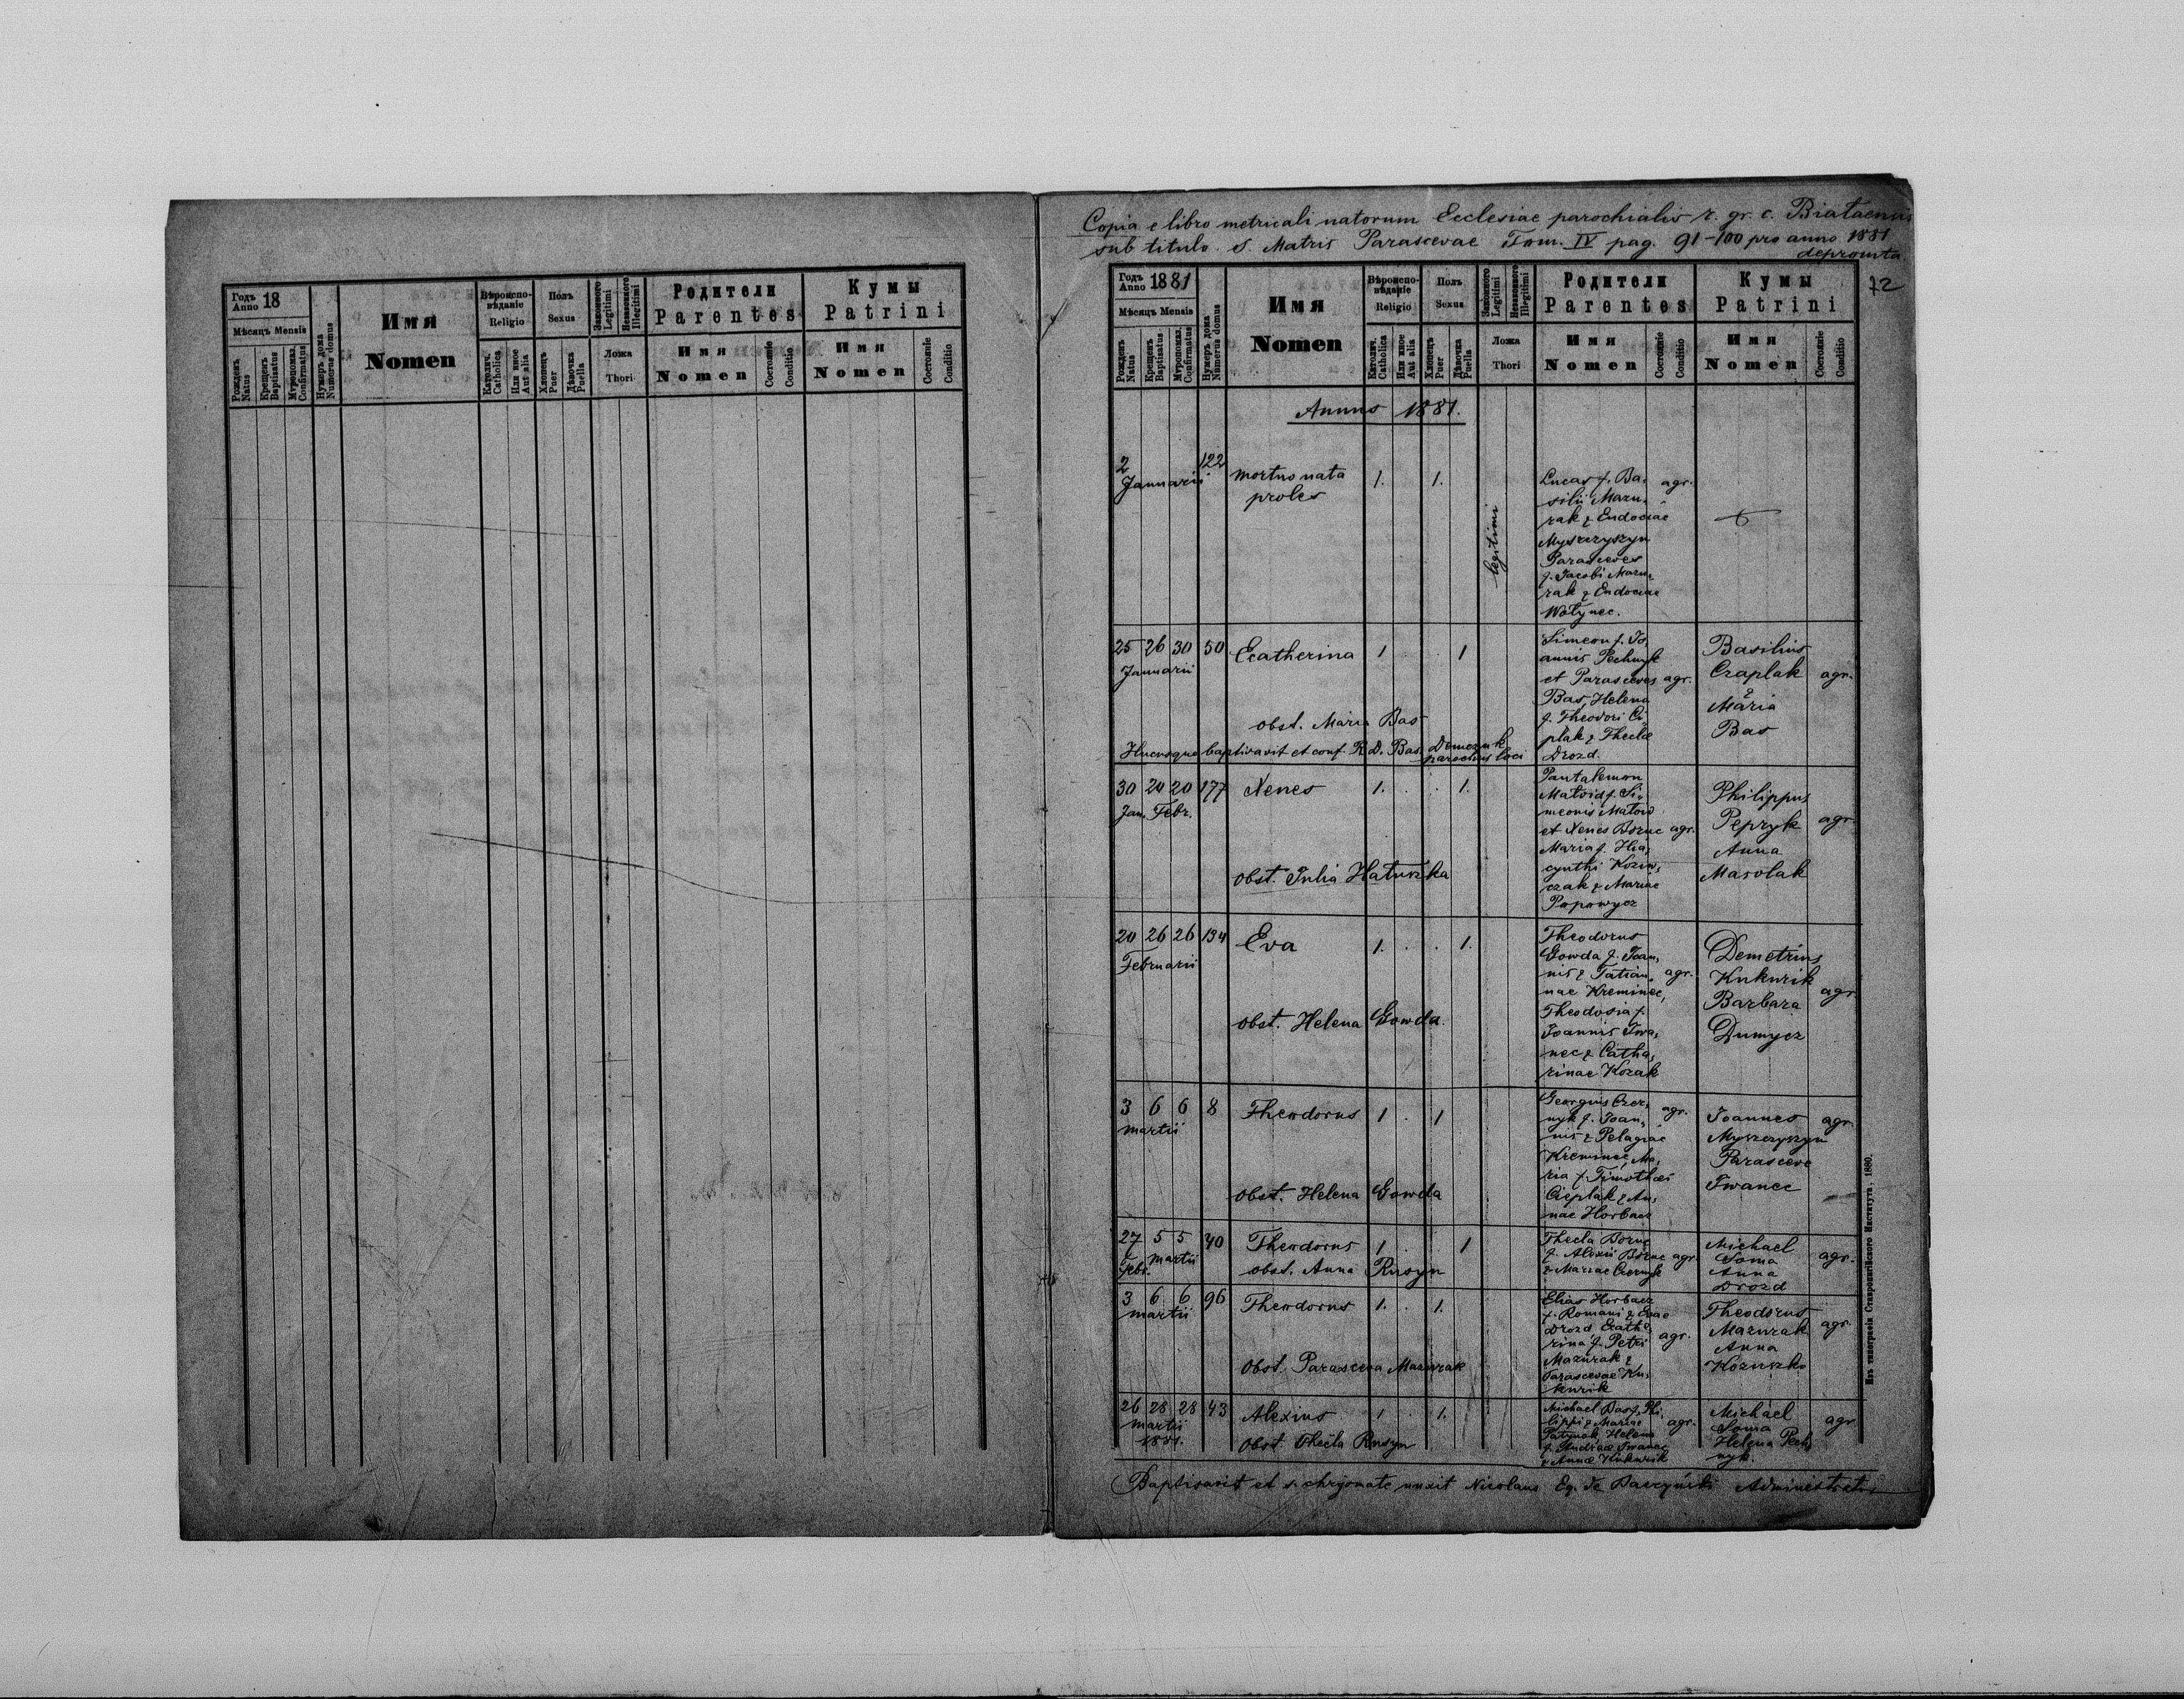 Годъ Anno 18
Мѣсяцъ Mensis
Рожденъ Natus
Крещенъ Baptisatus
Мѵропомаз. Confirmatus
Нумеръ дома Numerus domus
Имя
Nomen
Вѣроиспо-
вѣданіе
Religio
Католич. Catholica
Или иное Aut alia
Полъ
Sexus
Хлопецъ Puer
Дѣвочка Puella
Законного Legitimi
Незаконного Illegitimi
Ложа
Thori
Родители
Parentes
Имя
Nomen
Состояніе Conditio
Кумы
Patrini
Имя
Nomen
Состояніе Conditio
Copia e libro metricali natorum Ecclesiae parochialis r. gr. c. Białaensis
sub titulo S. Matris Parascevae Tom. IV pag. 91-100 pro anno 1881
depromta.
72
Годъ Anno 1881
Мѣсяцъ Mensis
Рожденъ Natus
Крещенъ Baptisatus
Мѵропомаз. Confirmatus
Нумеръ дома Numerus domus
Имя
Nomen
Вѣроиспо-
вѣданіе
Religio
Католич. Catholica
Или иное Aut alia
Полъ
Sexus
Хлопецъ Puer
Дѣвочка Puella
Законного Legitimi
Незаконного Illegitimi
Ложа
Thori
Родители
Parentes
Имя
Nomen
Состояніе Conditio
Кумы
Patrini
Имя
Nomen
Состояніе Conditio
Annus 1881.
2 122
Januarii
mortuo nata 1. 1.
proles
legitimi
Lucas f. Ba, agr.
silii Mazu,
rak & Eudociae
Myszczyszyn
Parasceves
f. Jacobi Mazu,
rak & Eudociae
Wołynec.
25 26 30 50 Ecatherina 1 . . 1
Januarii
obst. Maria Bas
Hucusque baptisavit et conf. R. D. Bas. Demczuk
parochus loci
Simeon f. Jo,
annis Pechnyk
et Parasceves agr.
Bas, Helena
f. Theodori Ci,
plak & Theclae
Drozd.
Basilius
Czaplak agr.
&
Maria
Bas
30 20 20 177 Xenes 1. . . 1.
Jan. Febr.
obst. Julia Hatuszka
Pantalemon
Matoid f. Si,
meonis Matoid
et Xenes Bozuc agr.
Maria f. Hia,
cynthi Koziw,
czak & Mariae
Popowycz
Philippus
Pepryk agr.
Anna
Masolak
20 26 26 134 Eva 1. . . 1.
Februarii
obst. Helena Gowda.
Theodorus
Gowda f. Joan,
nis & Tatian, agr.
nae Kreminec,
Theodosia f.
Joannis Iwa,
nec & Catha,
rinae Kozak
Demetrius
Kukurik
Barbara agr.
Dumycz
3 6 6 8 Theodorus 1 . 1
martii
obst. Helena Gowda
Georgius Czer, agr.
nyk f. Joan,
nis & Pelagiae
Kreminec, Ma,
ria f. Timothei
Cieplak & An,
nae Horbacz
Joannes agr.
Myszczyszyn
Parasceve
Iwanec
27 5 5 40 Theodorus 1 . . 1
Febr. martii
obst. Anna Rusyn
Thecla Bozuc
f. Alexii Bozuc agr.
& Mariae Czernyk
Michael
Soma agr.
Anna
Drozd
3 6 6 96 Theodorus 1. . 1.
martii
Obst. Parasceva Mazurak
Elias Horbacz
f. Romani & Evae
Drozd Ecathe,
rina f. Petri agr.
Mazurak &
Parascevae Ku,
kurik
Theodorus
Mazurak agr.
Anna
Kozuszko
26 28 28 43 Alexius 1 . 1.
martii
1881.
Obst. Thecla Rusyn
Michael Bas f. Phi,
lippi & Mariae agr.
Patynok, Helena
f. Andreae Iwanec
& Annae Kukurik
Michael agr.
Soma
Helena Pech,
nyk.
Baptisavit et s. chrysmate unxit Nicolaus Eq. de Daczyński Administrator
Изъ типографіи Ставропигійского Института, 1880.